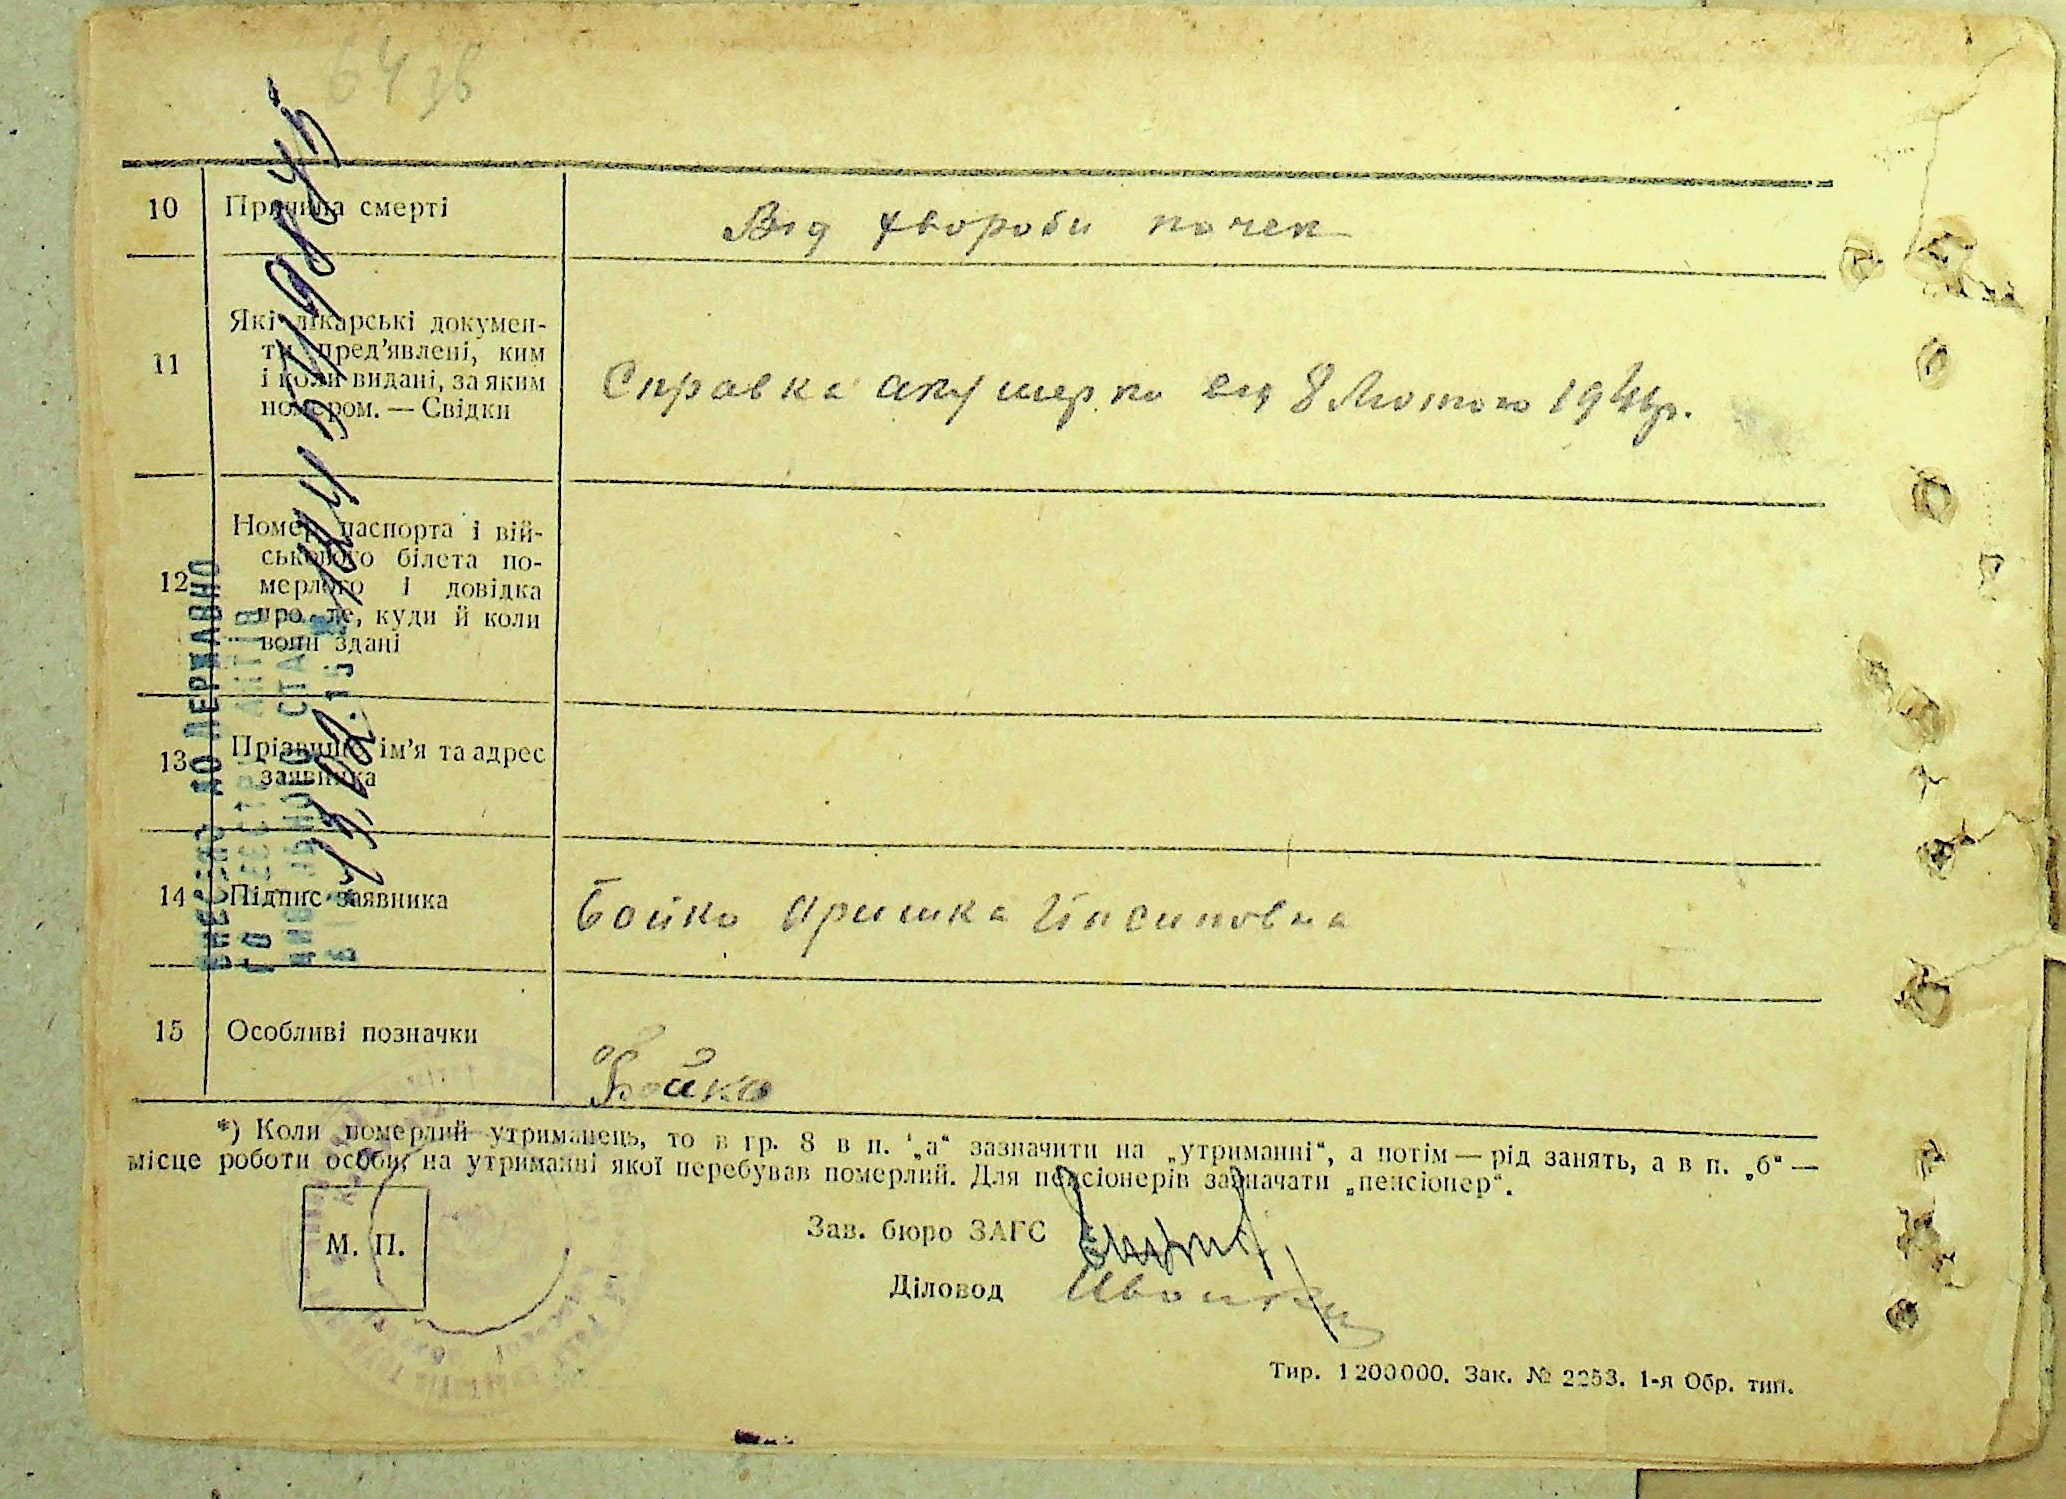 64 зв
10 Причина смерті
Від хвороби почек
11 Які лікарські докумен-
ти пред’явлені, ким
і коли видані, за яким
номером. — Свідки
Справка акушерки від 8 Лютого 1944р.
12 Номер паспорта і вій-
ськового білета по-
мерлого і довідка
про те, куди й коли
вони здані
13 Прізвище ім’я та адрес
заявника
14 Підпис заявника
Бойко Оришка Йосиповна
15 Особливі позначки
Бойко
*) Коли померлий утриманець, то в гр. 8 в п. „а“ зазначити на „утриманні“, а потім — рід занять, а в п. „б“ —
місце роботи особи, на утриманні якої перебував померлий. Для пенсіонерів зазначати „пенсіонер“.
М. П.
Зав. бюро ЗАГС
Діловод
Тир. 1200000. Зак. № 2253. 1-я Обр. тип.
ВНЕСЕНО ДО ДЕРЖАВНО
ГО РЕЄСТР АКТІВ
ЦИВІЛЬНОГО СТА